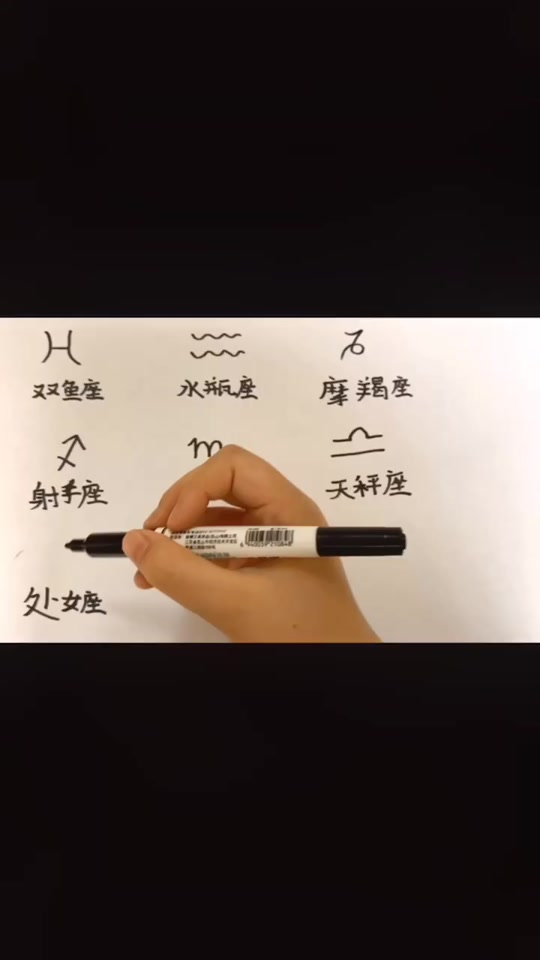 双鱼座 水瓶座 摩羯座
射手座 天秤座
处女座